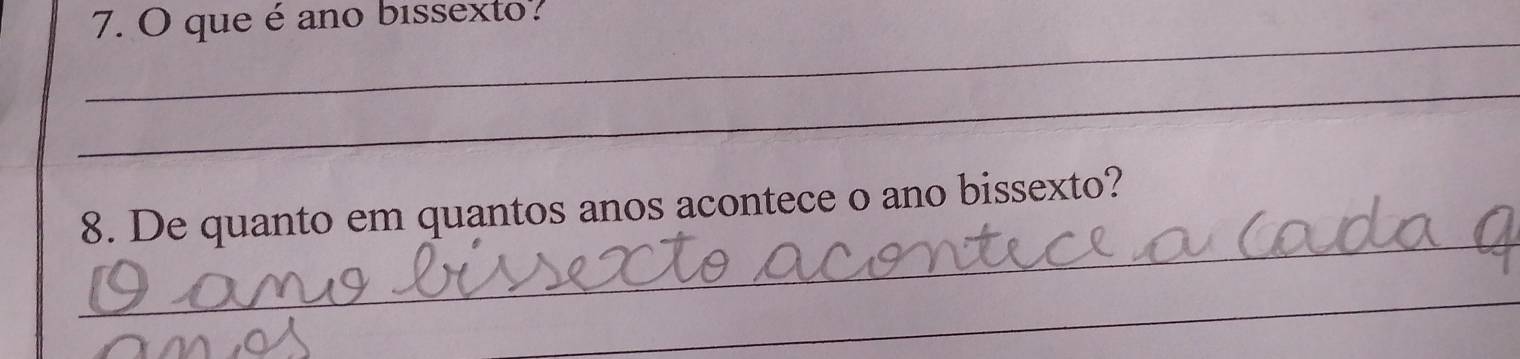 7. O que é ano bissexto?
8. De quanto em quantos anos acontece o ano bissexto?
O ano bissexto acontece a cada
anos